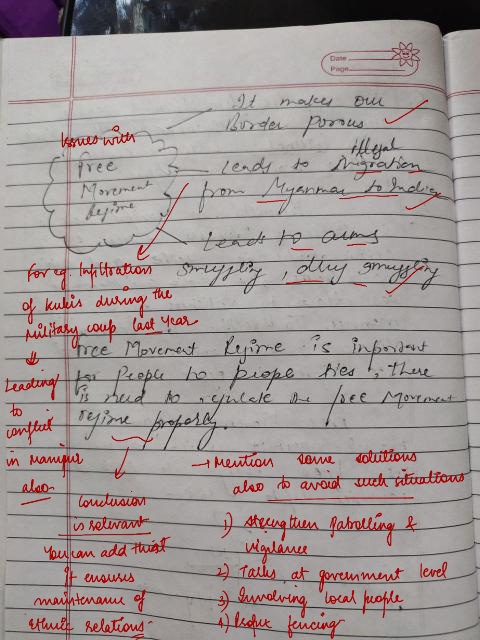 Date
Page
It makes our
Border porous
Issues with
Free
Movement
Regime
illegal
Leads to Migration
from Myanmar to India
Leads to arms
smuggling, drug smuggling
For eg. Infiltration
of Kukis during the
military coup last year
Leading
to
conflict
in Manipur
also
Free Movement Regime is important
for People to people ties, there
is need to regulate the free Movement
regime properly.
→ Mention some solutions
also to avoid such situations
Conclusion
is relevant
You can add that
It ensures
maintenance of
ethnic relations
1) Strengthen Patrolling &
vigilance
2) Talks at government level
3) Involving local people
4) fencing